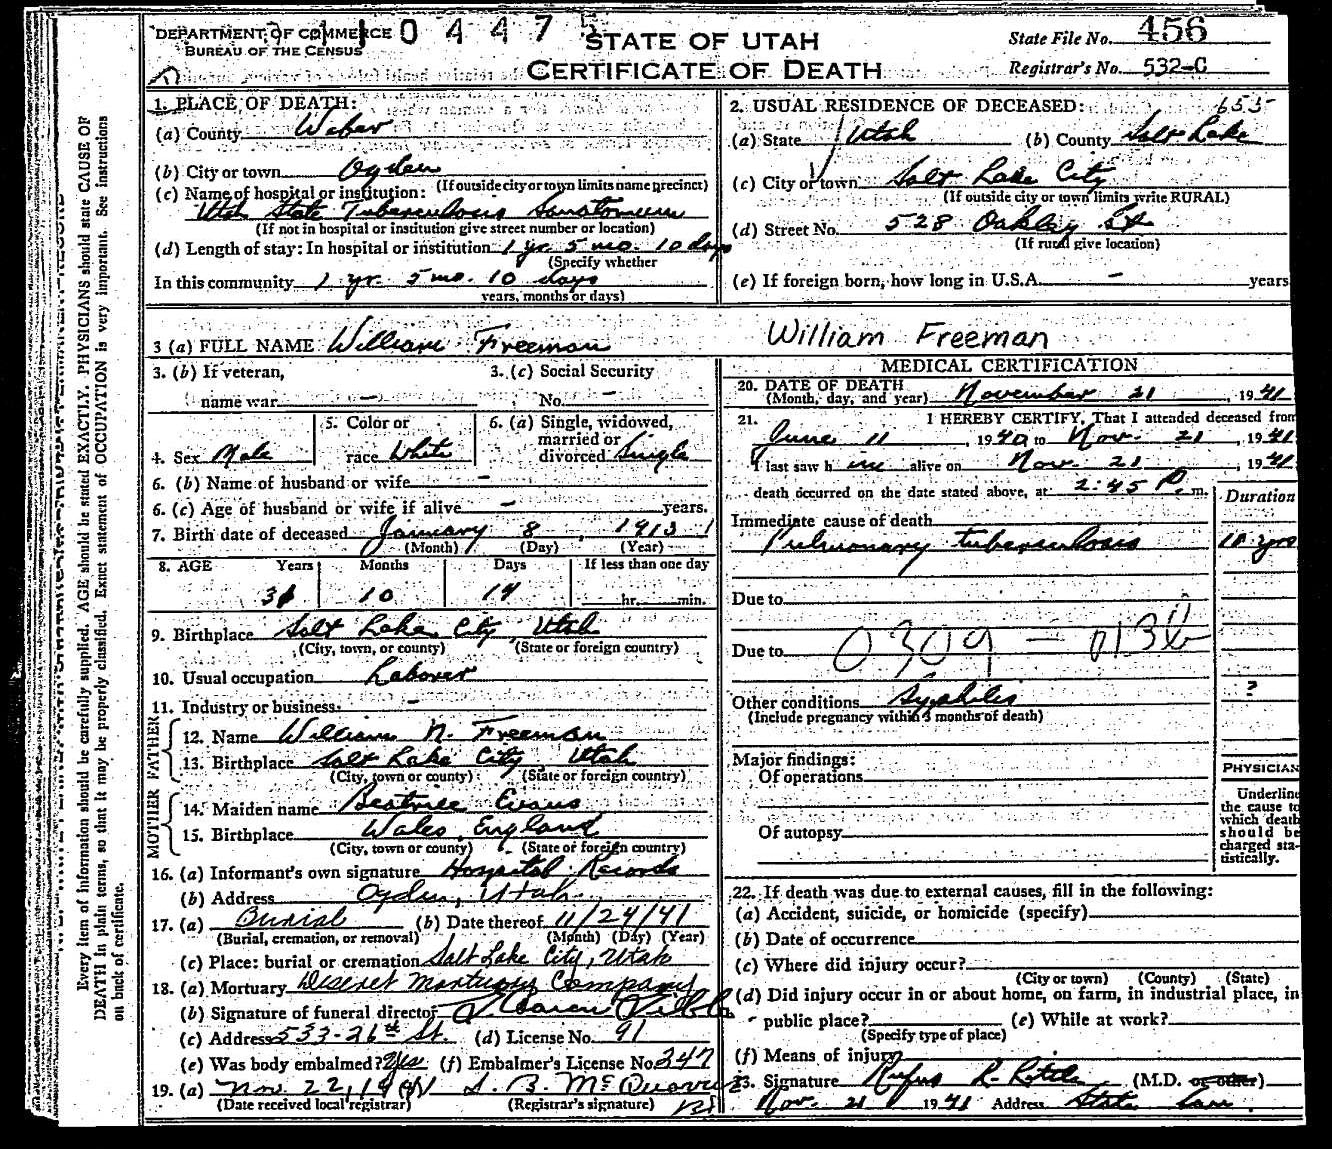 DEPARTMENT OF COMMERCE
BUREAU OF THE CENSUS
110 4475
STATE OF UTAH
CERTIFICATE OF DEATH
State File No. 456
Registrar's No. 532-C
1. PLACE OF DEATH:
(a) County Weber
(b) City or town Ogden
(If outside city or town limits name precinct)
(c) Name of hospital or institution:
Utah State Tuberculosis Sanatorium
(If not in hospital or institution give street number or location)
(d) Length of stay: In hospital or institution 1 yr. 5 mo. 10 days
(Specify whether
In this community 1 yr. 5 mo. 10 days
years, months or days)
2. USUAL RESIDENCE OF DECEASED: 655
(a) State Utah (b) County Salt Lake
(c) City or town Salt Lake City
(If outside city or town limits write RURAL)
(d) Street No. 528 Oakley St
(If rural give location)
(e) If foreign born, how long in U.S.A. - years
3 (a) FULL NAME William Freeman
William Freeman
3. (b) If veteran, name war -
3. (c) Social Security No. -
4. Sex Male
5. Color or race White
6. (a) Single, widowed, married or divorced Single
6. (b) Name of husband or wife -
6. (c) Age of husband or wife if alive - years.
7. Birth date of deceased January 8, 1913 1
(Month) (Day) (Year)
8. AGE Years Months Days If less than one day
10 14 hr. min.
9. Birthplace Salt Lake City, Utah
(City, town, or county) (State or foreign country)
10. Usual occupation Laborer
11. Industry or business -
FATHER
12. Name William N. Freeman
13. Birthplace Salt Lake City, Utah
(City, town or county) (State or foreign country)
MOTHER
14. Maiden name Beatrice Evans
15. Birthplace Wales, England
(City, town or county) (State or foreign country)
16. (a) Informant's own signature Hospital Records
(b) Address Ogden, Utah
17. (a) Burial (b) Date thereof 11/24/41
(Burial, cremation, or removal) (Month) (Day) (Year)
(c) Place: burial or cremation Salt Lake City, Utah
18. (a) Mortuary Deseret Mortuary Company
(b) Signature of funeral director
(c) Address 533-26th St. (d) License No. 91
(e) Was body embalmed? Yes (f) Embalmer's License No. 347
19. (a) Nov. 22, 1941
(Date received local registrar) (Registrar's signature)
MEDICAL CERTIFICATION
20. DATE OF DEATH
(Month, day, and year) November 21, 1941
21. I HEREBY CERTIFY, That I attended deceased from
June 11, 1940 to Nov. 21, 1941
I last saw him alive on Nov. 21, 1941
death occurred on the date stated above, at 2:45 P. m.
Duration
Immediate cause of death
Pulmonary tuberculosis yrs
Due to
Due to
Other conditions Syphilis ?
(Include pregnancy within 3 months of death)
Major findings:
Of operations
Of autopsy
PHYSICIAN
Underline
the cause to
which death
should be
charged sta-
tistically.
22. If death was due to external causes, fill in the following:
(a) Accident, suicide, or homicide (specify)
(b) Date of occurrence
(c) Where did injury occur?
(City or town) (County) (State)
(d) Did injury occur in or about home, on farm, in industrial place, in
public place? (e) While at work?
(Specify type of place)
(f) Means of injury
23. Signature Rufus R. (M.D. or other)
Nov. 21 1941 Address State San.
Every item of information should be carefully supplied. AGE should be stated EXACTLY. PHYSICIANS should state CAUSE OF
DEATH in plain terms, so that it may be properly classified. Exact statement of OCCUPATION is very important. See instructions
on back of certificate.